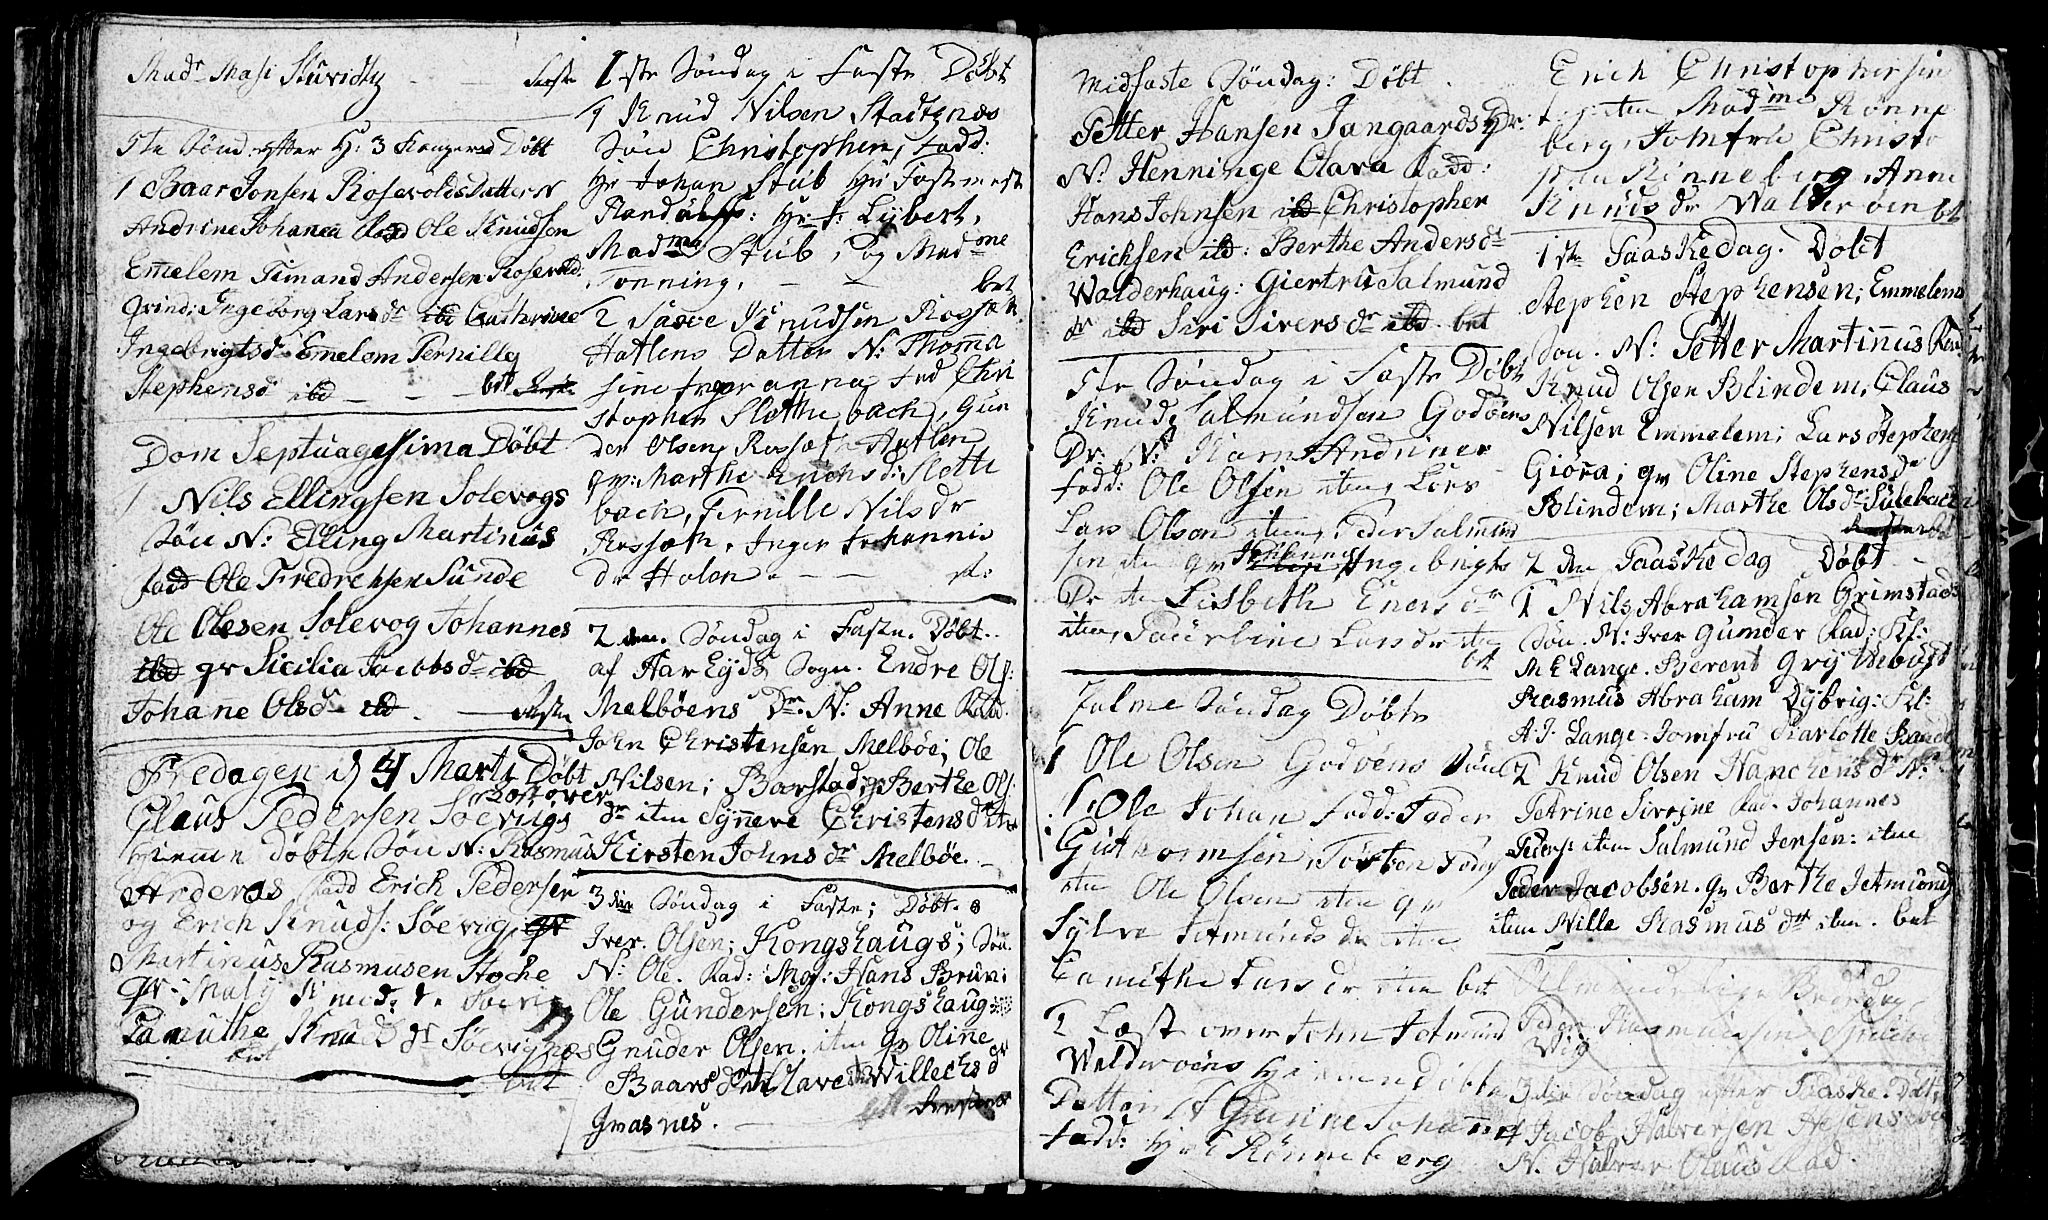 Mad^r Masi Stuvidtz - - reste
5te Sønd: efter H: 3 Kongers d Døbt
1 Baar Jonsen Rosevolds datter N
Andrine Johanna Fadd Ole Knudsen
Em̄elem Timand Andersen Rosevold:
Qvind: Ingeborg Lars d^r ibd Cathrine
Ingebrigts d^r Em̄elem Pernille
Stephens d^r ibd - - - bet
Dom Septuagesima Døbt
1 Nils Ellingsen Solevogs
Søn N: Elling Martinus
fadd Ole Fredrechsen Sunde
Ole Olesen Solevog Johannes
ibd qv Sicilia Jacobs d^r ibd
Johan̄e Ols d^r ibd - reste
Fredagen d 4 Marti Døbt
Læst over
Claus Pedersen Søevigs
hiemme døbte Søn N: Rasmus
Anderas Fadd Erich Pedersen
og Erich Knuds: Søevig, qv
Martinus Rasmusen
qv: Mali Knuds dr Søevig
Lanuthe Knud d^r Søevignes
bet
1ste Søndag i Faste Døbt
1 Knud Nilsen Stadtznæs
Søn Christopher, Fadd:
Hr Johan Stub Hr Fostmest
Randulff: Hr: L: Lybert,
Mad^me Stub, og Mad^me
Tonning, - - bet
2 Sasve Knudsen Rossæt
Hatlens Datter N: Thoma
sine Fredrianna Fad Chri
stopher Slettebach, Gun
der Olsen, Rossæt Hatlen
qv: Marthe Erichsd: Slette
bach, Pernille Nils dr
Rossæth, Inger Johannis
dr Holen - - - rt:
2 den Søndag i Faste. Døbt.
af HarEyds Sogn. Endre Ols:
Melbøens D^r: N: Anne Fad.
John Christensen Melbøe; Ole
Nilsen; Barstad; Berthe Ols:
d^r item Syn̄eve Christens d^r item
Kirsten Johns d^r Melbøe. -
3die Søndag i Faste; Døbt.
Iver Olsen; Kongshaugs; Søn.
N: Ole. Fad: Mg: Hans Brun:
Ole Gundersen; Kongshaug
Gnuder Olsen. item qv Olin̄e
Baars d^r Maren Willechs d^r
Grasnes. -
Midfaste Søndag: Døbt.
Petter Hansen Tangaards Dr:
N: Henninge Olava Fadd:
Hans Johnsen ibd Christopher
Erichsen ibd: Berthe Anders d^r
Walderhaug: Giertru Salmund
d^r ibd Siri Sivers d^r ibd. bet
5te Søndag i Faste Døbt
Knud Salmundsen Godøens
Dr: N: Karn Andrinne
Fadd: Ole Olsen item, Lars
Lars Olson item, Peder Salmund
sen item qv Johanne Ingebrigts
Dr item Lisbeth Eners d^r
item, Lars dr item
bet
Palme Søndag Døbte
1 Ole Olsen Godøens Søn
N: Ole Johan Fadd: Peder
Guttormsen, Torben
item Ole Olsen item qv
Sylva Jetmunds dr item
Lanuthe Lars dr item bet
2 Læst over John Jetmund
Walderøens hiemmedøbte
Datter N Gunne Johanne
Fadd: Hr C Rønneberg
Erich Christophersen
item Mad^me Rønne
berg, Jomfru Christo
Rinneberg, Anne
Knuds dr Walderøen bet
1ste Paaskedag. Døbt
Stephen Stephensen; Emmelems
Søn. N: Petter Martin̄us Fad
Knud Olsen Blindem, Claus
Nilsen Emmelem; Lars Stephens
Giøra; qv Oline Stephens d^r
Blindem; Marthe Ols d^r Sulebacken
2 den Paaskedag Døbt -
1 Nils Abrahamsen Grimstads
Søn. N: Iver Gunder Fad: Kl:
M E Lange. Berent Gry
Rasmus Abraham Dybvig: Fr:
A J. Lange. Jomfru Karlotte Rand
2 Knud Olsen Hanckens d^r N:
Petrine Sivrine Fad. Johannes
Peders: item Salmund Jensen: item
Peder Jacobsen. qv Berthe Jetmunds
item Nille Rasmus d^r item. bet
Peder Rasmussen
Vig
3die Søndag efter Paaske. Døbt,
1 Jacob Halversen
N. Halvor Olaus Fad.